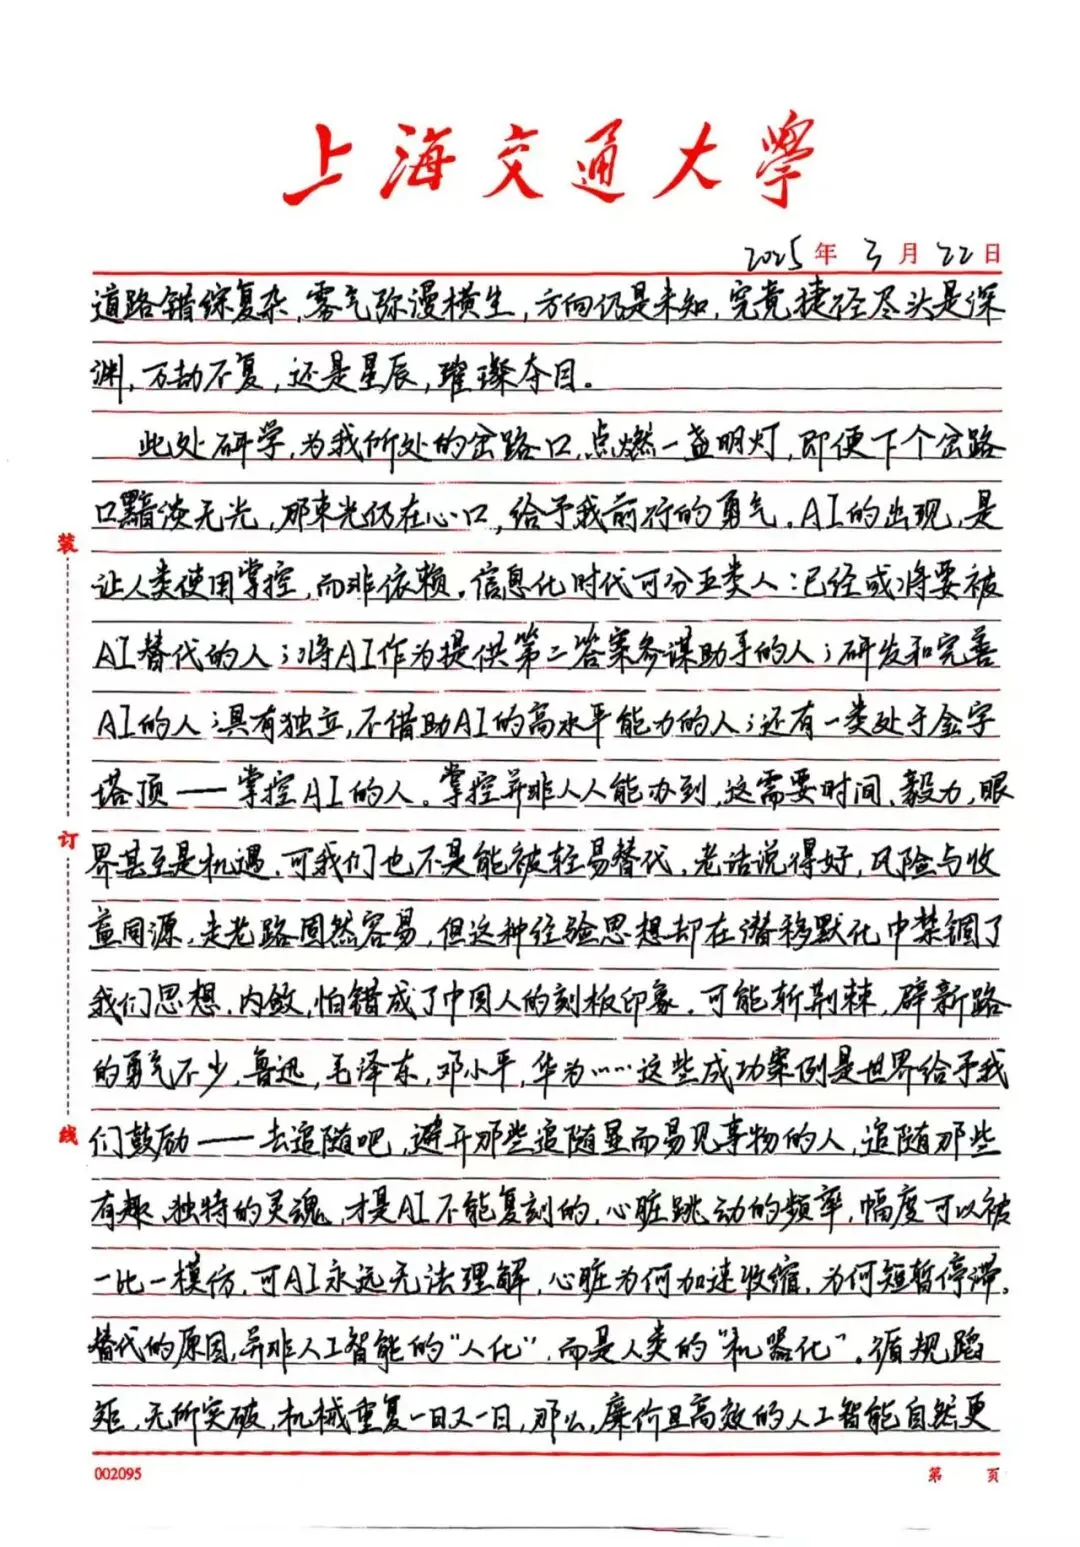 上海交通大學
2025年3月22日
道路错综复杂,雾气弥漫横生,方向仍是未知,究竟捷径尽头是深
渊,万劫不复,还是星辰,璀璨夺目。
此处研学,为我所处的岔路口,点燃一盏明灯,即便下个岔路
口黯淡无光,那束光仍在心口,给予我前行的勇气。AI的出现,是
让人类使用掌控,而非依赖。信息化时代可分五类人:已经或将要被
AI替代的人;将AI作为提供第二答案参谋助手的人;研发和完善
AI的人;具有独立,不借助AI的高水平能力的人;还有一类处于金字
塔顶——掌控AI的人。掌控并非人人能办到,这需要时间、毅力,眼
界甚至是机遇,可我们也不是能被轻易替代,老话说得好,风险与收
益同源,走老路固然容易,但这种经验思想却在潜移默化中禁锢了
我们思想,内敛,怕错成了中国人的刻板印象。可能斩荆棘,辟新路
的勇气不少,鲁迅,毛泽东,邓小平,华为……这些成功案例是世界给予我
们鼓励——去追随吧,避开那些追随显而易见事物的人,追随那些
有趣、独特的灵魂,才是AI不能复刻的,心脏跳动的频率,幅度可以被
一比一模仿,可AI永远无法理解,心脏为何加速收缩,为何短暂停滞。
替代的原因,并非人工智能的“人化”,而是人类的“机器化”。循规蹈
矩,无所突破,机械重复一日又一日,那么,廉价且高效的人工智能自然更
装
订
线
002095
第 页